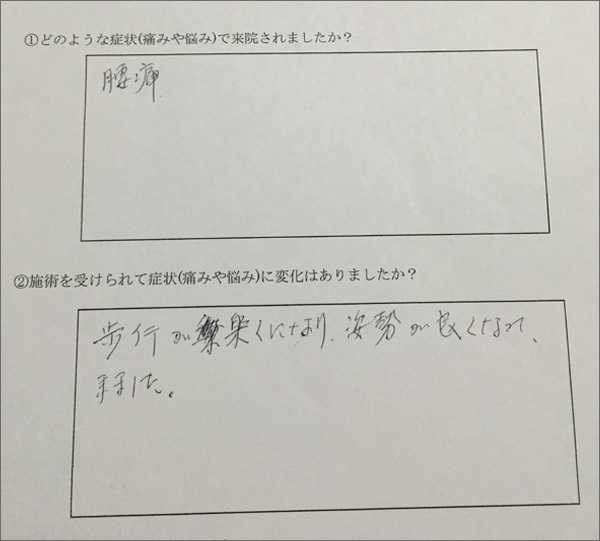 ①どのような症状(痛みや悩み)で来院されましたか？
腰痛
②施術を受けられて症状(痛みや悩み)に変化はありましたか？
歩行が楽になり、姿勢が良くなって、
きました。